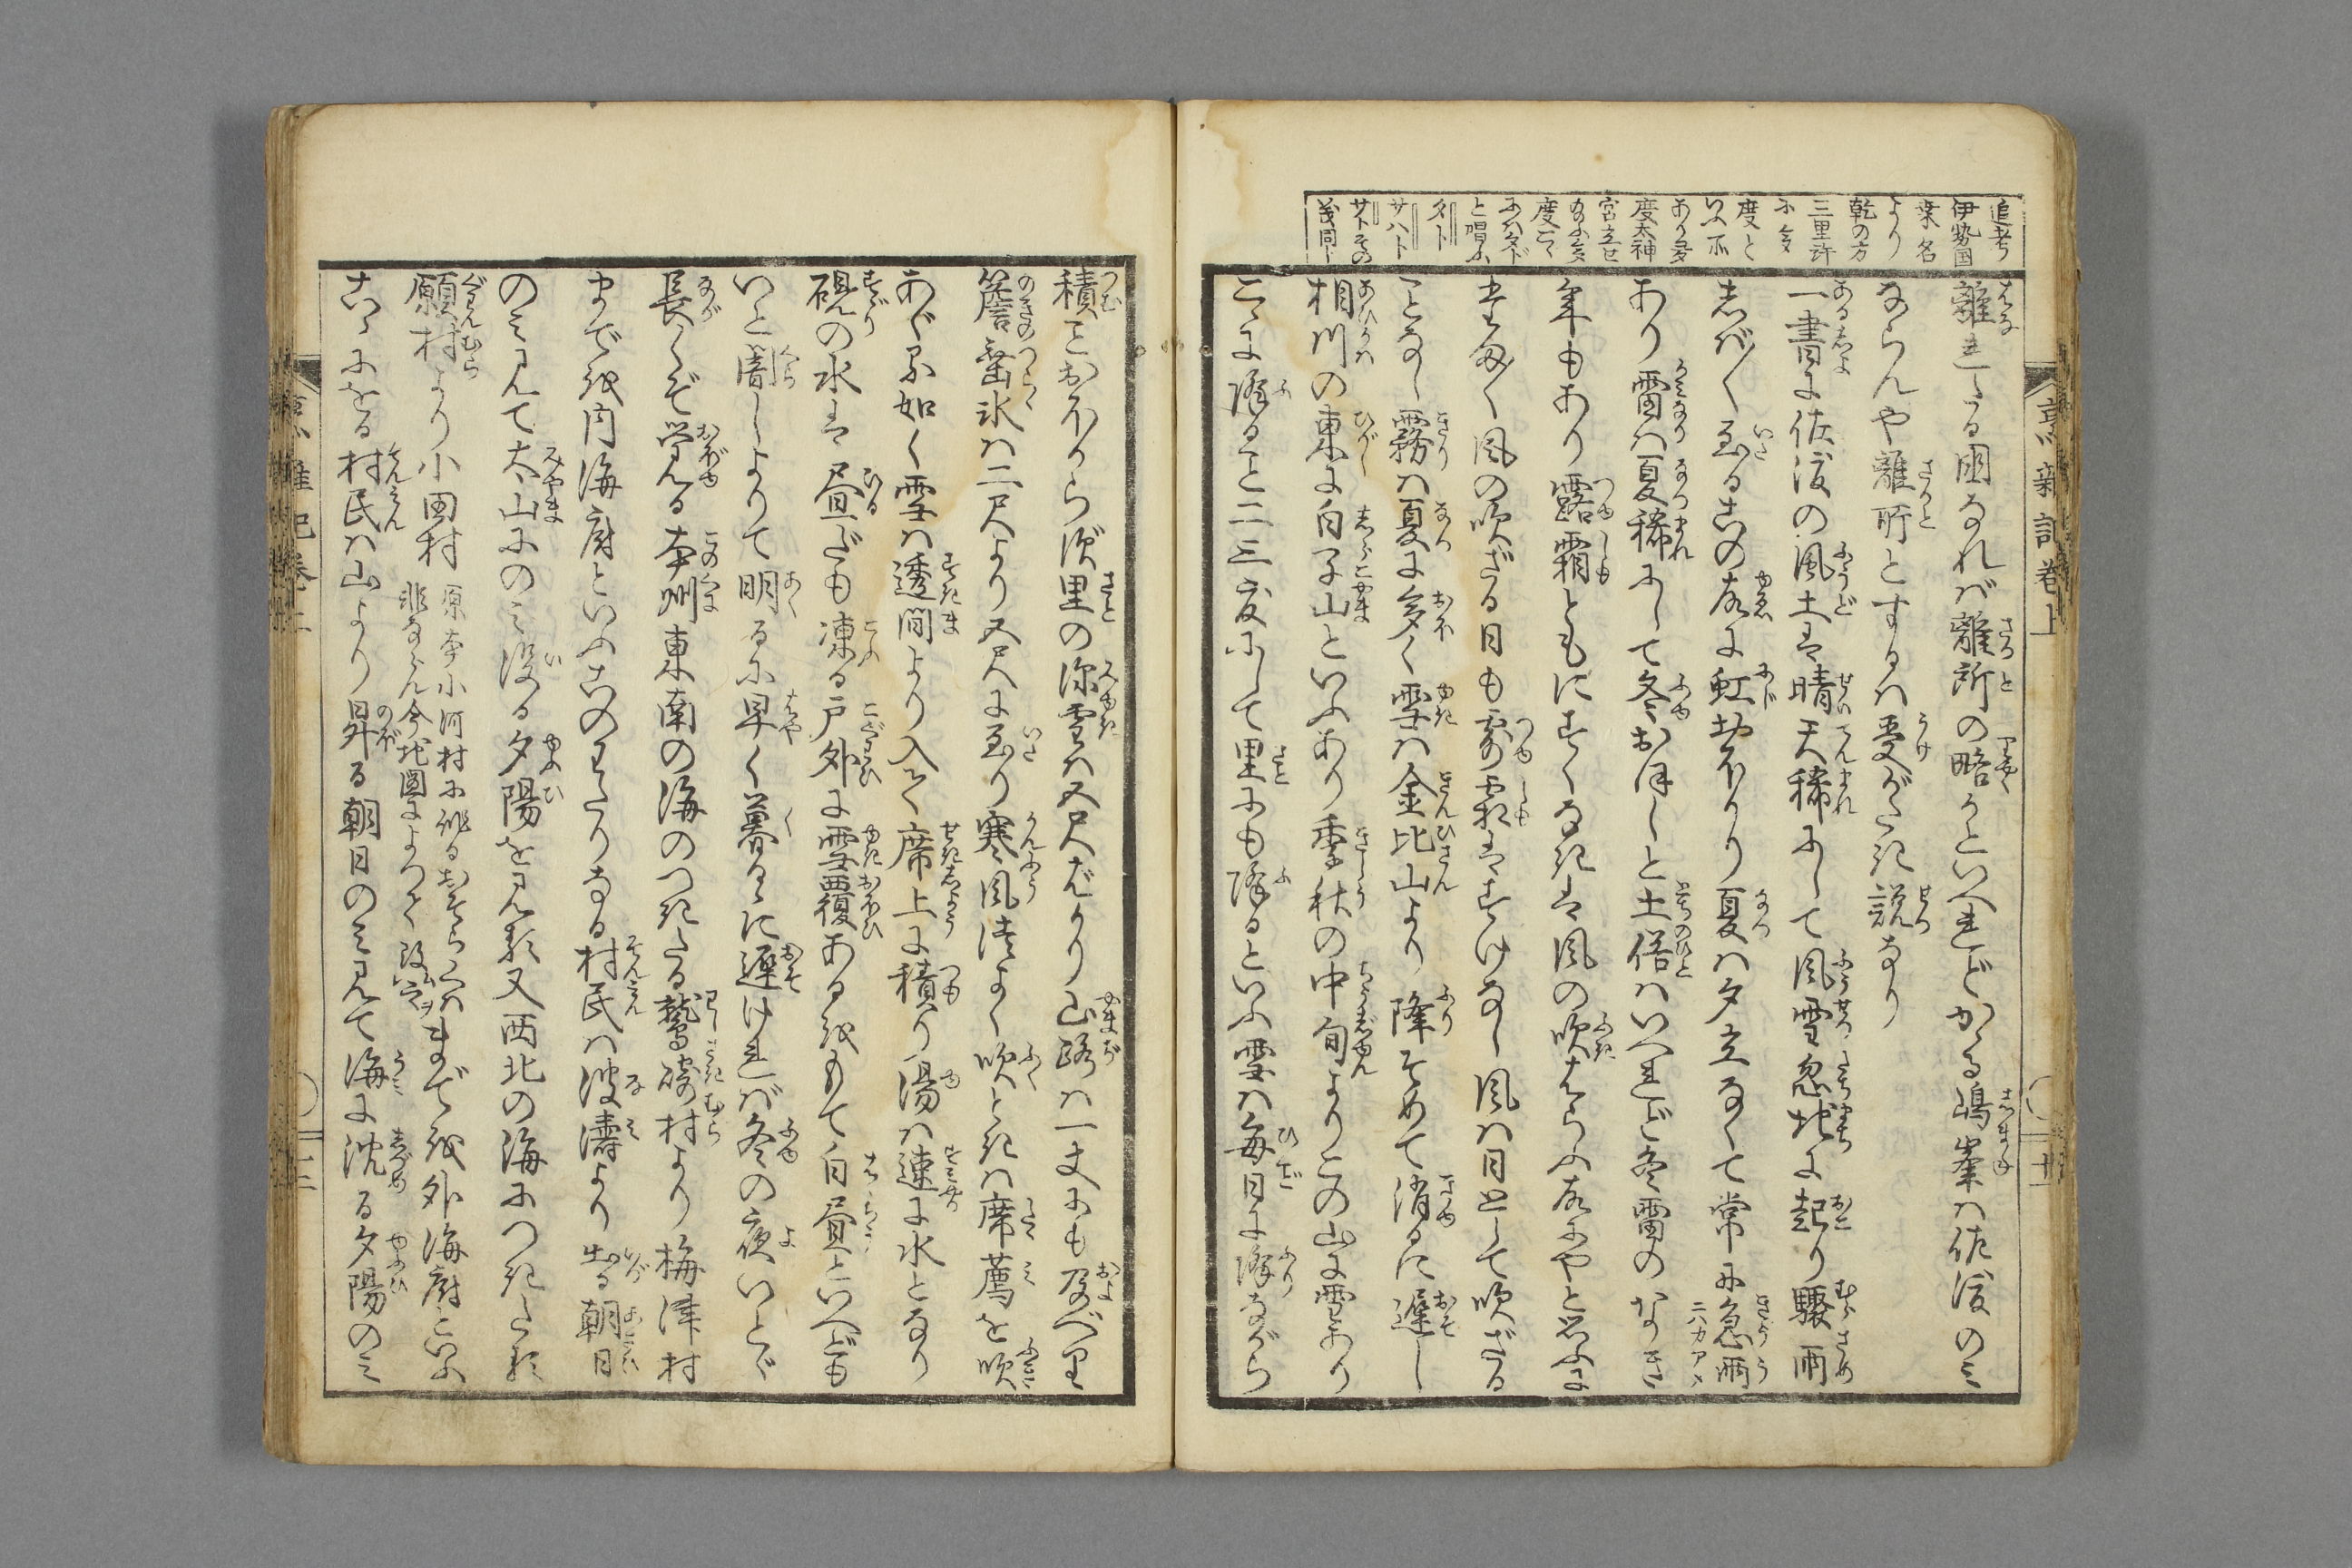 追考
伊勢国
桑名
より
乾の方
三里許
に多
度と
いふ所
あり多
度太神
宮立せ
給ふ多
度こゝ
にハタド
と唱ふ
タト
サハト
サトその
義同し
烹雑記巻上
離れたる国なれバ離所の略かといへれどかゝる嶋峯ハ佐渡のミ
ならんや離所とするハ受がたき説なり
一書に佐渡の風土は晴天稀にして風雪忽地に起り驟雨
しバ〳〵至るこの故に虹おほかり夏ハ夕立なくて常に急雨
あり雷ハ夏稀にして冬おほしと土俗ハいへれど冬雷のなき
年もあり露霜ともにすくなきは風の吹はらふ故にやと思ふに
たま〳〵風の吹ざる日も露霜はすけなし風ハ日として吹ざる
ことなし霧ハ夏に多く雪ハ金北山より降そめて消るに遅し
相川の東に白子山といふあり季秋の中旬よりこの山に雪ふり
こゝに降ること二三度にして里にも降るといふ雪ハ毎日に降ながら
積ことおほからず里の深雪ハ五尺ばかり山路ハ一丈にも及べり
簷の垂氷ハ二尺より五尺に至り寒風つよく吹ときハ席薦を吹
あぐる如く雪ハ透間より入て席上に積り湯ハ速に氷となり
硯の水は昼だも凍る戸外に雪覆ある故もて白昼といへども
いと闇しよりて明るに早く暮るゝに遅けれバ冬の夜いとゞ
長くぞ覚る本州東南の海のつきたる鷲崎村より梅津村
まで幾内海府といふこのわたりなる村民ハ波濤より出る朝日
のミ見て太山にのミ没る夕陽を見ず又西北の海につきたる
願村より小田村
原本小河村に作る
非ならん今地図によつて改ム
まで幾外海府といふ
こゝにをる村民ハ山より昇る朝日のミ見て海に沈る夕陽のミ